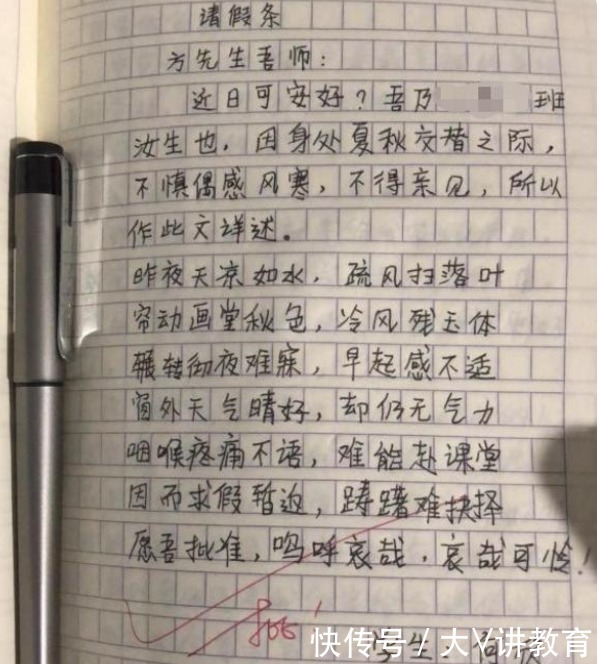 请假条
方先生吾师：
近日可安好？吾乃班
汝生也，因身处夏秋交替之际，
不慎偶感风寒，不得亲见，所以
作此文详述。
昨夜天凉如水，疏风扫落叶
帘动画堂秋色，冷风残玉体
辗转彻夜难寐，早起感不适
窗外天气晴好，却仍无气力
咽喉疼痛不语，难能赴课堂
因而求假暂返，踌躇难抉择
愿吾批准，呜呼哀哉，哀哉可怜！
快传号／大V讲教育